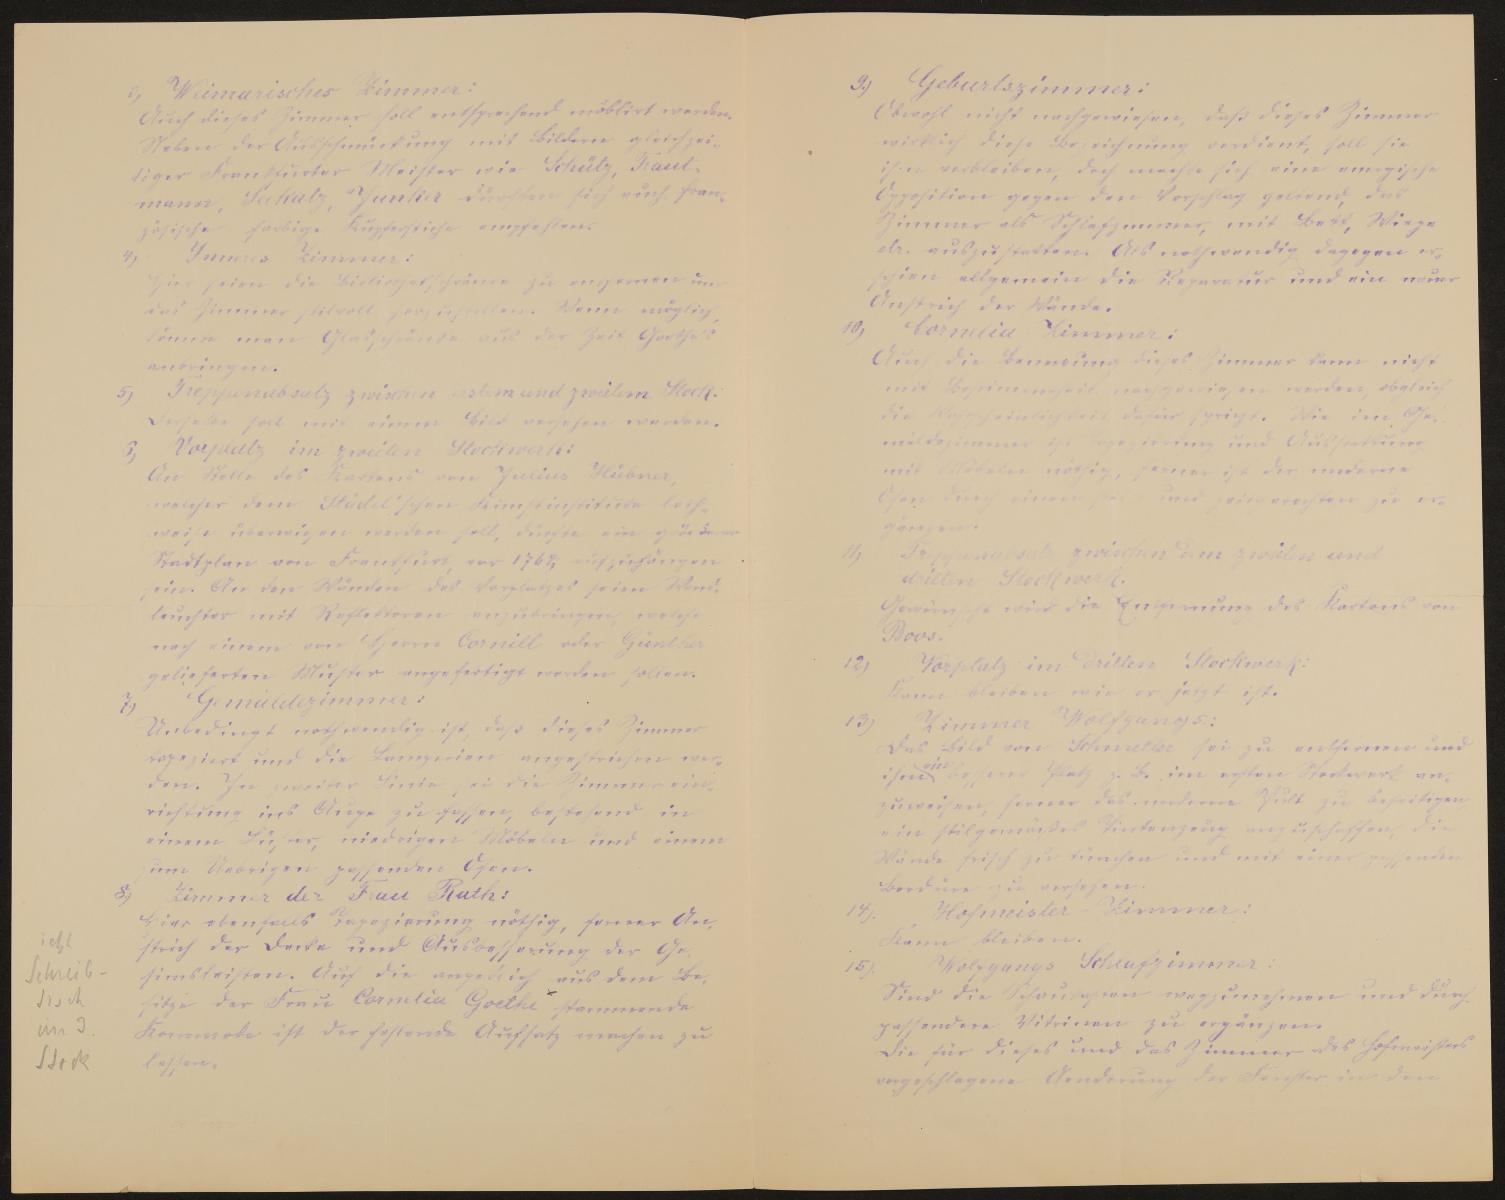 3) Weimarisches Zimmer:
Auch dieses Zimmer soll entsprechend möblirt werden.
Neben der Ausschmückung mit Bildern gleichzei-
tiger Frankfurter Meister wie Schütz, Traut-
mann, Seekatz, Junker dürften sich auch fran-
zösische farbige Kupferstiche empfehlen.
4) Inneres Zimmer:
Hier seien die Bibliothekschränke zu entfernen und
das Zimmer stilvoll herzustellen. Wenn möglich,
könnte man Glasschränke aus der Zeit Goethe's
anbringen.
5) Treppenabsatz zwischen erstem und zweitem Stock:
Derselbe soll mit einem Bild versehen werden.
6) Vorplatz im zweiten Stockwerk:
An Stelle des Kartons von Julius Hübner,
welcher dem Städel'schen Kunstinstitute leih-
weise überwiesen werden soll, dürfte ein größerer
Stadtplan von Frankfurt, vor 1762, aufzuhängen
sein. An den Wänden des Vorplatzes seien Wand-
leuchter mit Reflektoren anzubringen, welche
nach einem von Herrn Cornill oder Günther
gelieferten Muster angefertigt werden sollen.
7) Gemäldezimmer:
Unbedingt nothwendig ist, daß dieses Zimmer
tapeziert und die Lamperien angestrichen wer-
den. In zweiter Linie sei die Zimmerein-
richtung ins Auge zu fassen, bestehend in
einem Lüster, niedrigen Möbeln und einem
zum Uebrigen passenden Ofen.
8) Zimmer der Frau Rath:
Hier ebenfalls Tapezierung nöthig, ferner An-
strich der Decke und Ausbesserung der Ge-
simsleisten. Auf die angeblich aus dem Be-
sitze der Frau Cornelia Goethe stammende
Kommode ist der fehlende Aufsatz machen zu
lassen.
Schreib-
tisch
im 3.
Stock
9) Geburtszimmer:
Obwohl nicht nachgewiesen, daß dieses Zimmer
wirklich diese Bezeichnung verdient, soll sie
ihm verbleiben, doch machte sich eine energische
Opposition gegen den Vorschlag geltend, das
Zimmer als Schlafzimmer, mit Bett, Wiege
etc. auszustatten. Als nothwendig dagegen er-
schien allgemein die Reparatur und ein neuer
Anstrich der Wände.
10) Cornelia Zimmer:
Auch die Benennung dieses Zimmer kann nicht
mit Bestimmtheit nachgewiesen werden, obgleich
die Wahrscheinlichkeit dafür spricht. Wie im Ge-
mäldezimmer ist Tapezierung und Ausstattung
mit Möbeln nöthig, ferner ist der moderne
Ofen durch einen und zeitgerechten zu er-
gänzen.
11) Treppenabsatz zwischen dem zweiten und
dritten Stockwerk.
Gewünscht wird die Entfernung des Kartons von
Roos.
12) Vorplatz im dritten Stockwerk:
Kann bleiben wie er jetzt ist.
13) Zimmer Wolfgangs:
Das Bild von Schmeller sei zu entfernen und
ihm ein besserer Platz z. B. im ersten Stockwerk an-
zuweisen, ferner das moderne Pult zu beseitigen,
ein stilgemäßes Tintenzeug anzuschaffen, die
Wände frisch zu tünchen und mit einer passenden
Bordüre zu versehen.
14) Hofmeister-Zimmer:
Kann bleiben.
15) Wolfgangs Schlafzimmer:
Sind die Schaukasten wegzunehmen und durch
passendere Vitrinen zu ergänzen.
Die für dieses und das Zimmer des Hofmeisters
vorgeschlagene Aenderung der Fenster in den